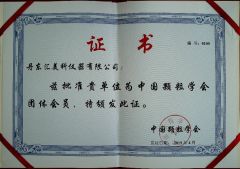 证书
编号：0100
丹东汇美科仪器有限公司：
兹批准贵单位为中国颗粒学会
团体会员，特颁发此证。
中国颗粒学会